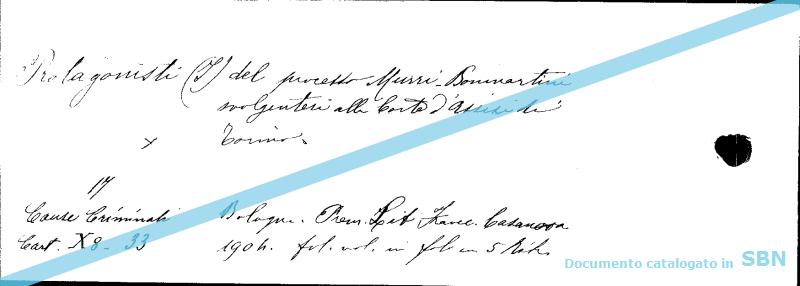 Protagonisti (I) del processo Murri-Bonmartini
svolgentesi alla Corte d'Assisi di
Torino.
17
Cause Criminali
Cart. X8-33
Bologna. Prem. Lit. Franc. Casanova
1904. fol. vol. in fol.
Documento catalogato in SBN